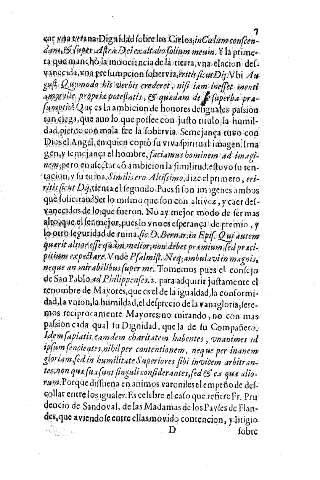 7
car vna vetana Dignidad sobre los Cielos, in Cælum conscen-
dam, & super astra Dei exaltabo solium meum. Y la prime-
ra que manchò la innocencia de la tierra, vna elacion des-
vanecida, vna presumpcion sobervia, eritis sicut Dij. Vbi Au-
gust. Quomodo his verbis crederet, nisi iam inesset menti
amor ille propriæ potestatis, & quædam de se superba præ-
sumptio? Que es la ambicion de honores desiguales passion
tan ciega, que aun lo que possee con justo titulo la humil-
dad, pierde con mala fee la sobervia. Semejança tuvo con
Dios el Angel, en quien copiò su viva spiritual imagen: Ima
gen, y semejança el hombre, faciamus hominem ad imagi-
nem; pero en afectar cõ ambicion la similitud estuvo su ten-
tacion, y su ruina, similis ero Altissimo, dize el primero, eri-
tis sicut Dij, sienta el segundo. Pues si son imagenes ambos
què solicitan? Ser lo mismo que son con altivez, y caer des-
vanecidos de lo que fueron. No ay mejor modo de ser mas
alto, que el ser mejor, pues lo vno es esperança de premio, y
lo otro seguridad de ruina. sic D. Bernar. in Epis. Qui autem
quærit altior esse quàm melior, non debet præmium, sed præci-
pitium expectare. Vnde Psalmist. Neq; ambulavi in magnis,
neque in mirabilibus super me. Tomemos pues el consejo
de San Pablo, ad Philippenses. 2. para adquirir justamente el
renombre de Mayores, que es el de la igualdad, la conformi-
dad, la vnion, la humildad, el desprecio de la vanagloria, sere-
mos reciprocamente Mayores no mirando, no con mas
passion cada qual su Dignidad, que la de su Compañero.
Idem sapiatis, eamdem charitatem habentes, vnanimes id
ipsum sentientes, nihil per contentionem, neque per inanem
gloriam, sed in humilitate Superiores sibi invicem arbitran-
tes, non quæ sua sunt singuli considerantes, sed & ea quæ alio-
rum. Porque dissuena en animos varoniles el empeño de des-
collar entre los iguales. Es celebre el caso que refiere Fr. Pru
dencio de Sandoval, de las Madamas de los Payses de Flan-
des, que aviendose entre ellas movido contencion, y litigio
D sobre